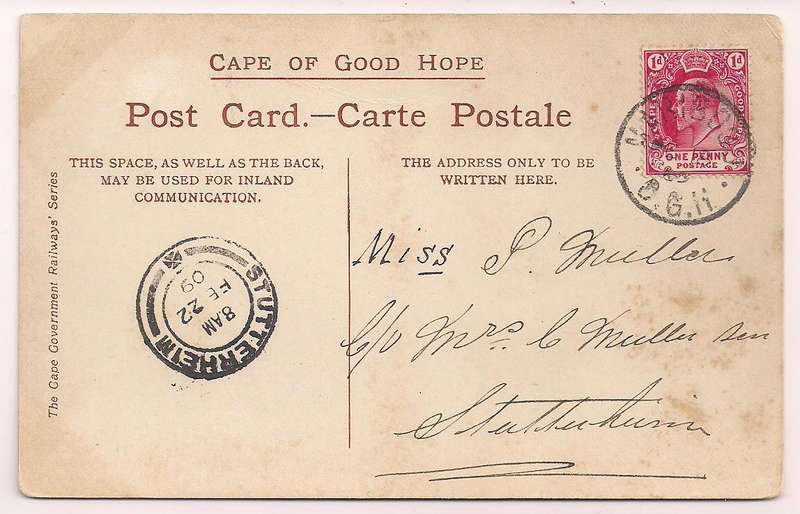 CAPE OF GOOD HOPE
Post Card.—Carte Postale
THIS SPACE, AS WELL AS THE BACK,
MAY BE USED FOR INLAND
COMMUNICATION.
THE ADDRESS ONLY TO BE
WRITTEN HERE.
1d 1d
CAPE OF GOOD HOPE
ONE PENNY
POSTAGE
C.G.H.
The Cape Government Railways' Series
STUTTERHEIM
8 AM
FE 22
09
Miss P. Muller
C/o Mrs. C Muller sen
Stutterheim